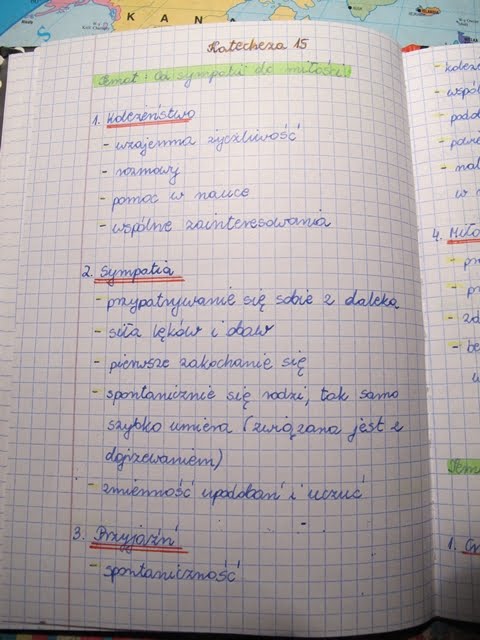 KANA
Katecheza 15
Temat: Od sympatii do miłości!
1. Koleżeństwo
- wzajemna życzliwość
- rozmowy
- pomoc w nauce
- wspólne zainteresowania
2. Sympatia
- przypatrywanie się sobie z daleka
- siła lęków i obaw
- pierwsze zakochanie się
- spontanicznie się rodzi, tak samo
szybko umiera (związana jest z
dojrzewaniem)
- zmienność upodobań i uczuć
3. Przyjaźń
- spontaniczność
4. Miło